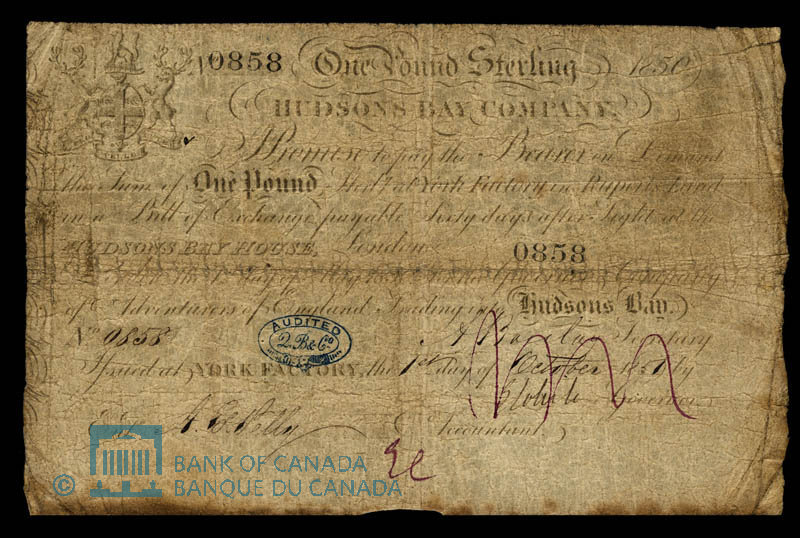 0858 One Pound Sterling 1850
HUDSONS BAY COMPANY.
Promise to pay the Bearer on Demand
the Sum of One Pound Sterg. at York Factory in Ruperts Land
in a Bill of Exchange payable Sixty days after Sight at the
HUDSONS BAY HOUSE, London.
0858
Governor & Company
of Adventurers of England Trading into Hudsons Bay.
No. 0858
Secretary
AUDITED
Q.B&Co
Issued at YORK FACTORY, the 1st day of October by
Governor
Accountant.
© BANK OF CANADA
BANQUE DU CANADA